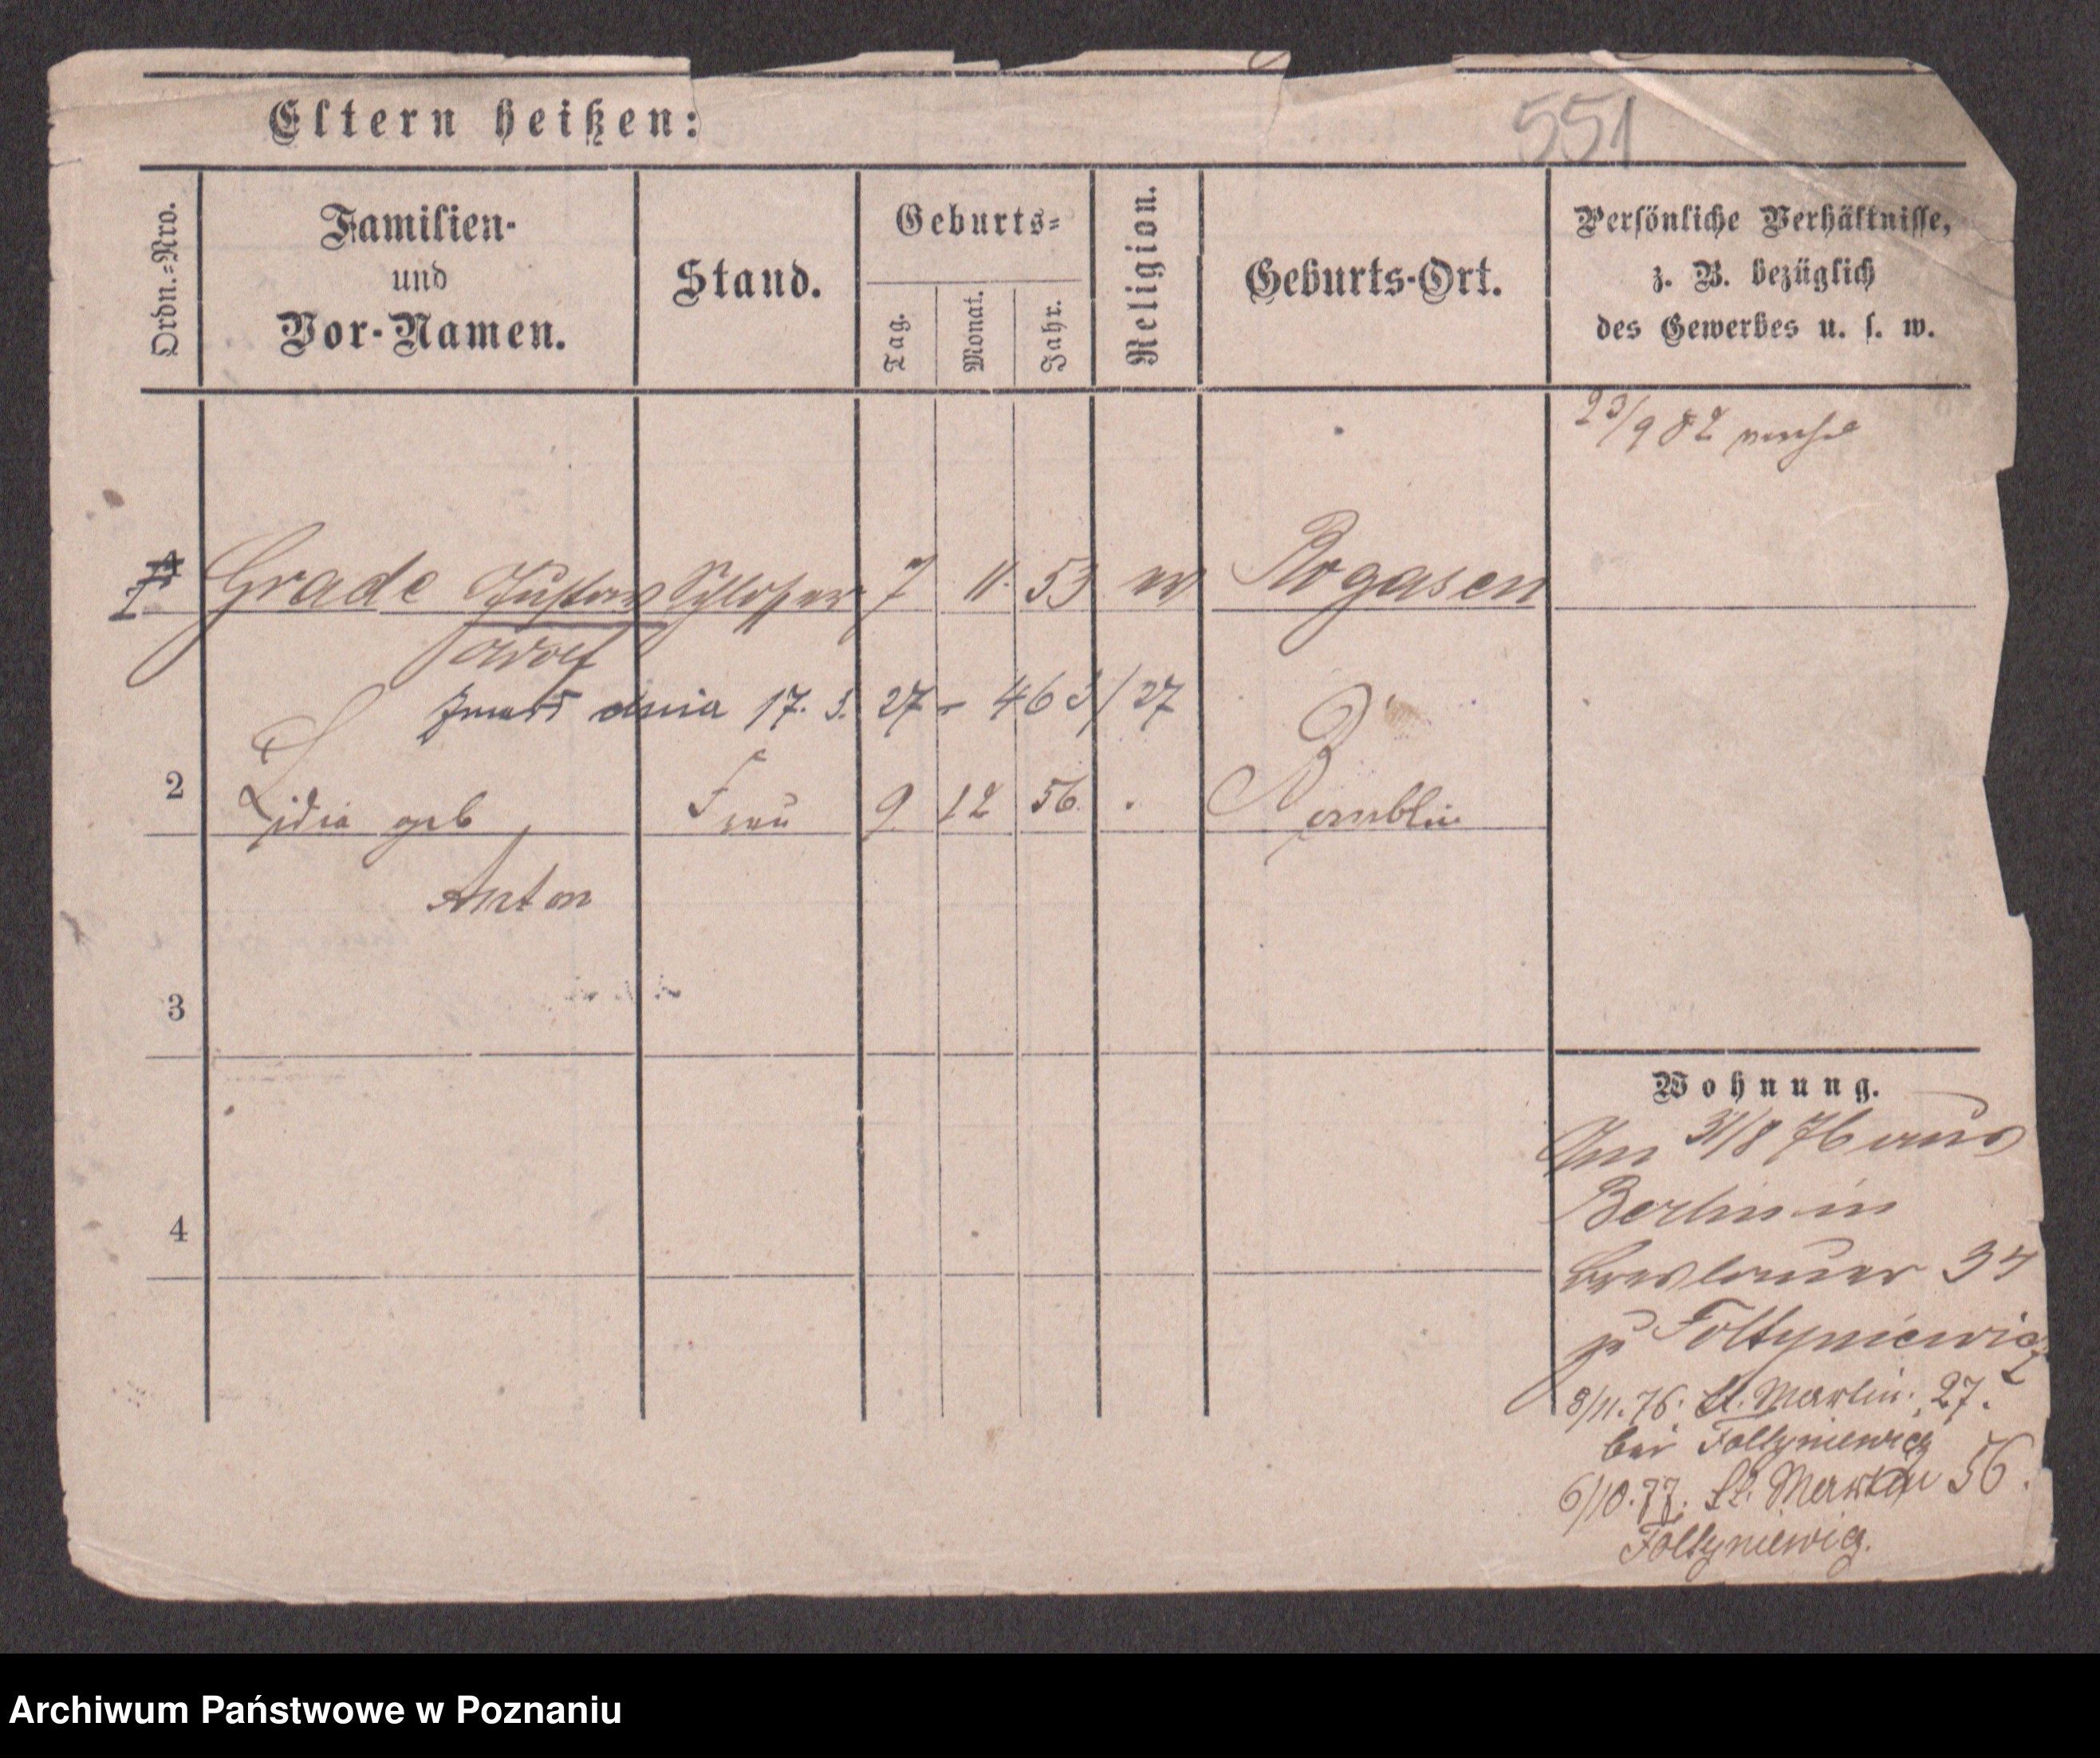 551
Eltern heißen:
Ordn.=Nro.
Familien-
und
Vor-Namen.
Stand.
Geburts=
Tag.
Monat.
Jahr.
Religion.
Geburts-Ort.
Persönliche Verhältnisse,
z. B. bezüglich
des Gewerbes u. s. w.
23/9 82
1 Grade Gustav Schlosser 7 11. 53 Rogasen
Adolf
dnia 17. 3. 27 - 463/27
2 Lidia geb Frau 9. 12 56.
Anton
3
4
Wohnung.
Am 31/8 76 aus
Berlin in
Breslauer 34
Foltyniewicz
3/11. 76. St. Martin. 27.
bei Foltyniewicz
6/10. 77. St. Martin 56.
Foltyniewicz.
Archiwum Państwowe w Poznaniu